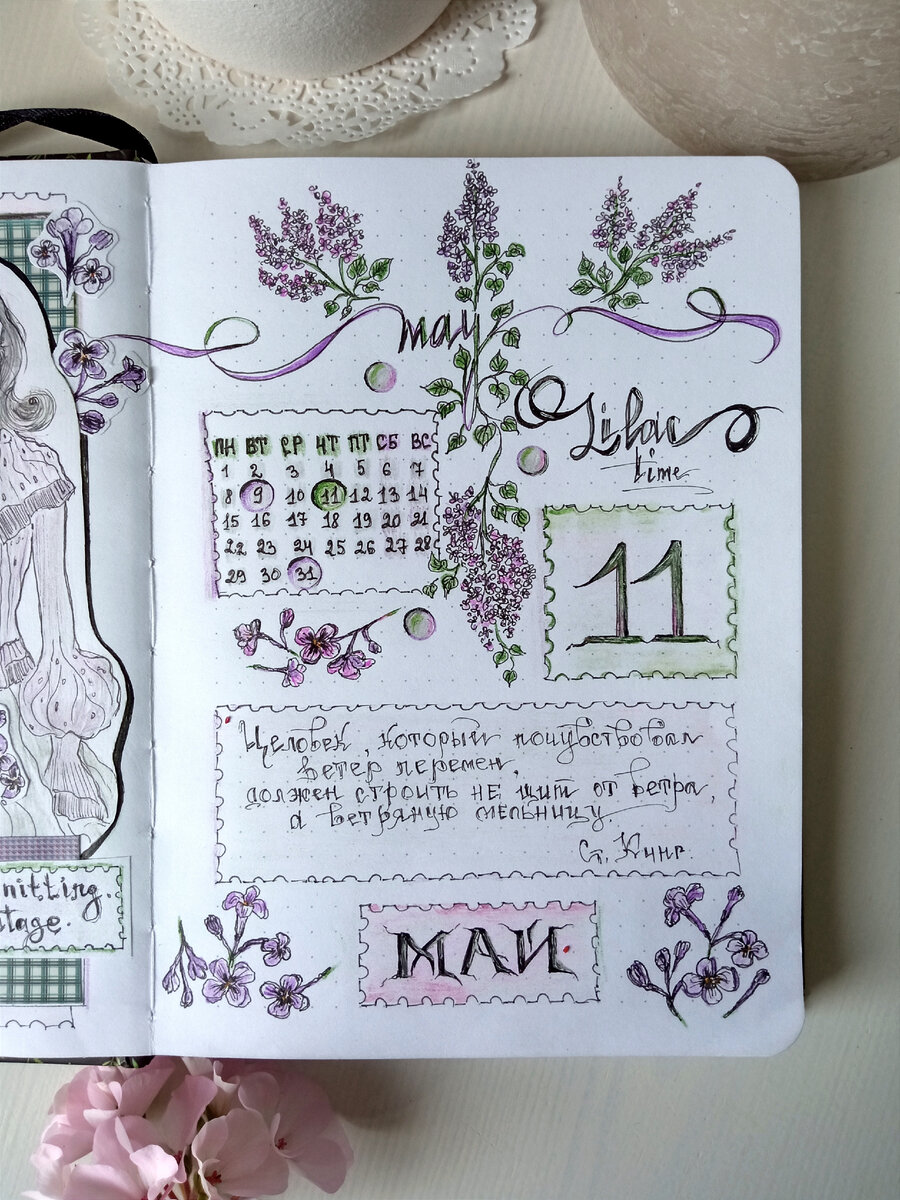 may
Lilac
time
ПН ВТ СР ЧТ ПТ СБ ВС
1 2 3 4 5 6 7
8 9 10 11 12 13 14
15 16 17 18 19 20 21
22 23 24 25 26 27 28
29 30 31
11
Человек, который почувствовал
ветер перемен,
должен строить не щит от ветра,
а ветряную мельницу.
Ст. Кинг.
МАЙ
nitting.
tage.